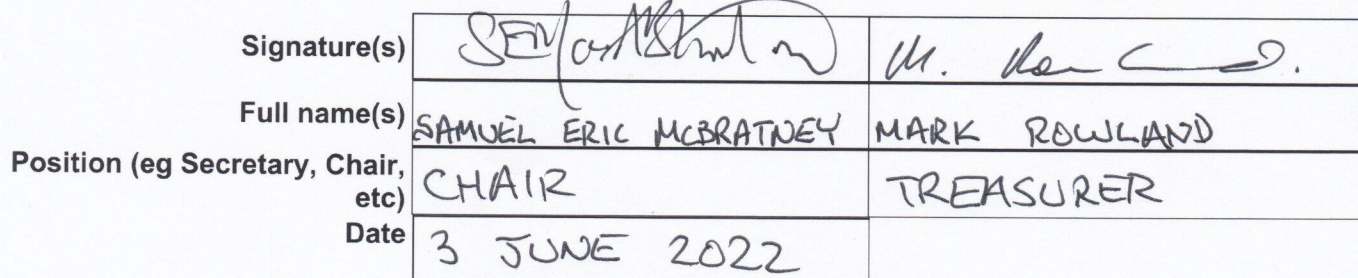 Signature(s)
Full name(s) SAMUEL ERIC MCBRATNEY MARK ROWLAND
Position (eg Secretary, Chair,
etc) CHAIR TREASURER
Date 3 JUNE 2022